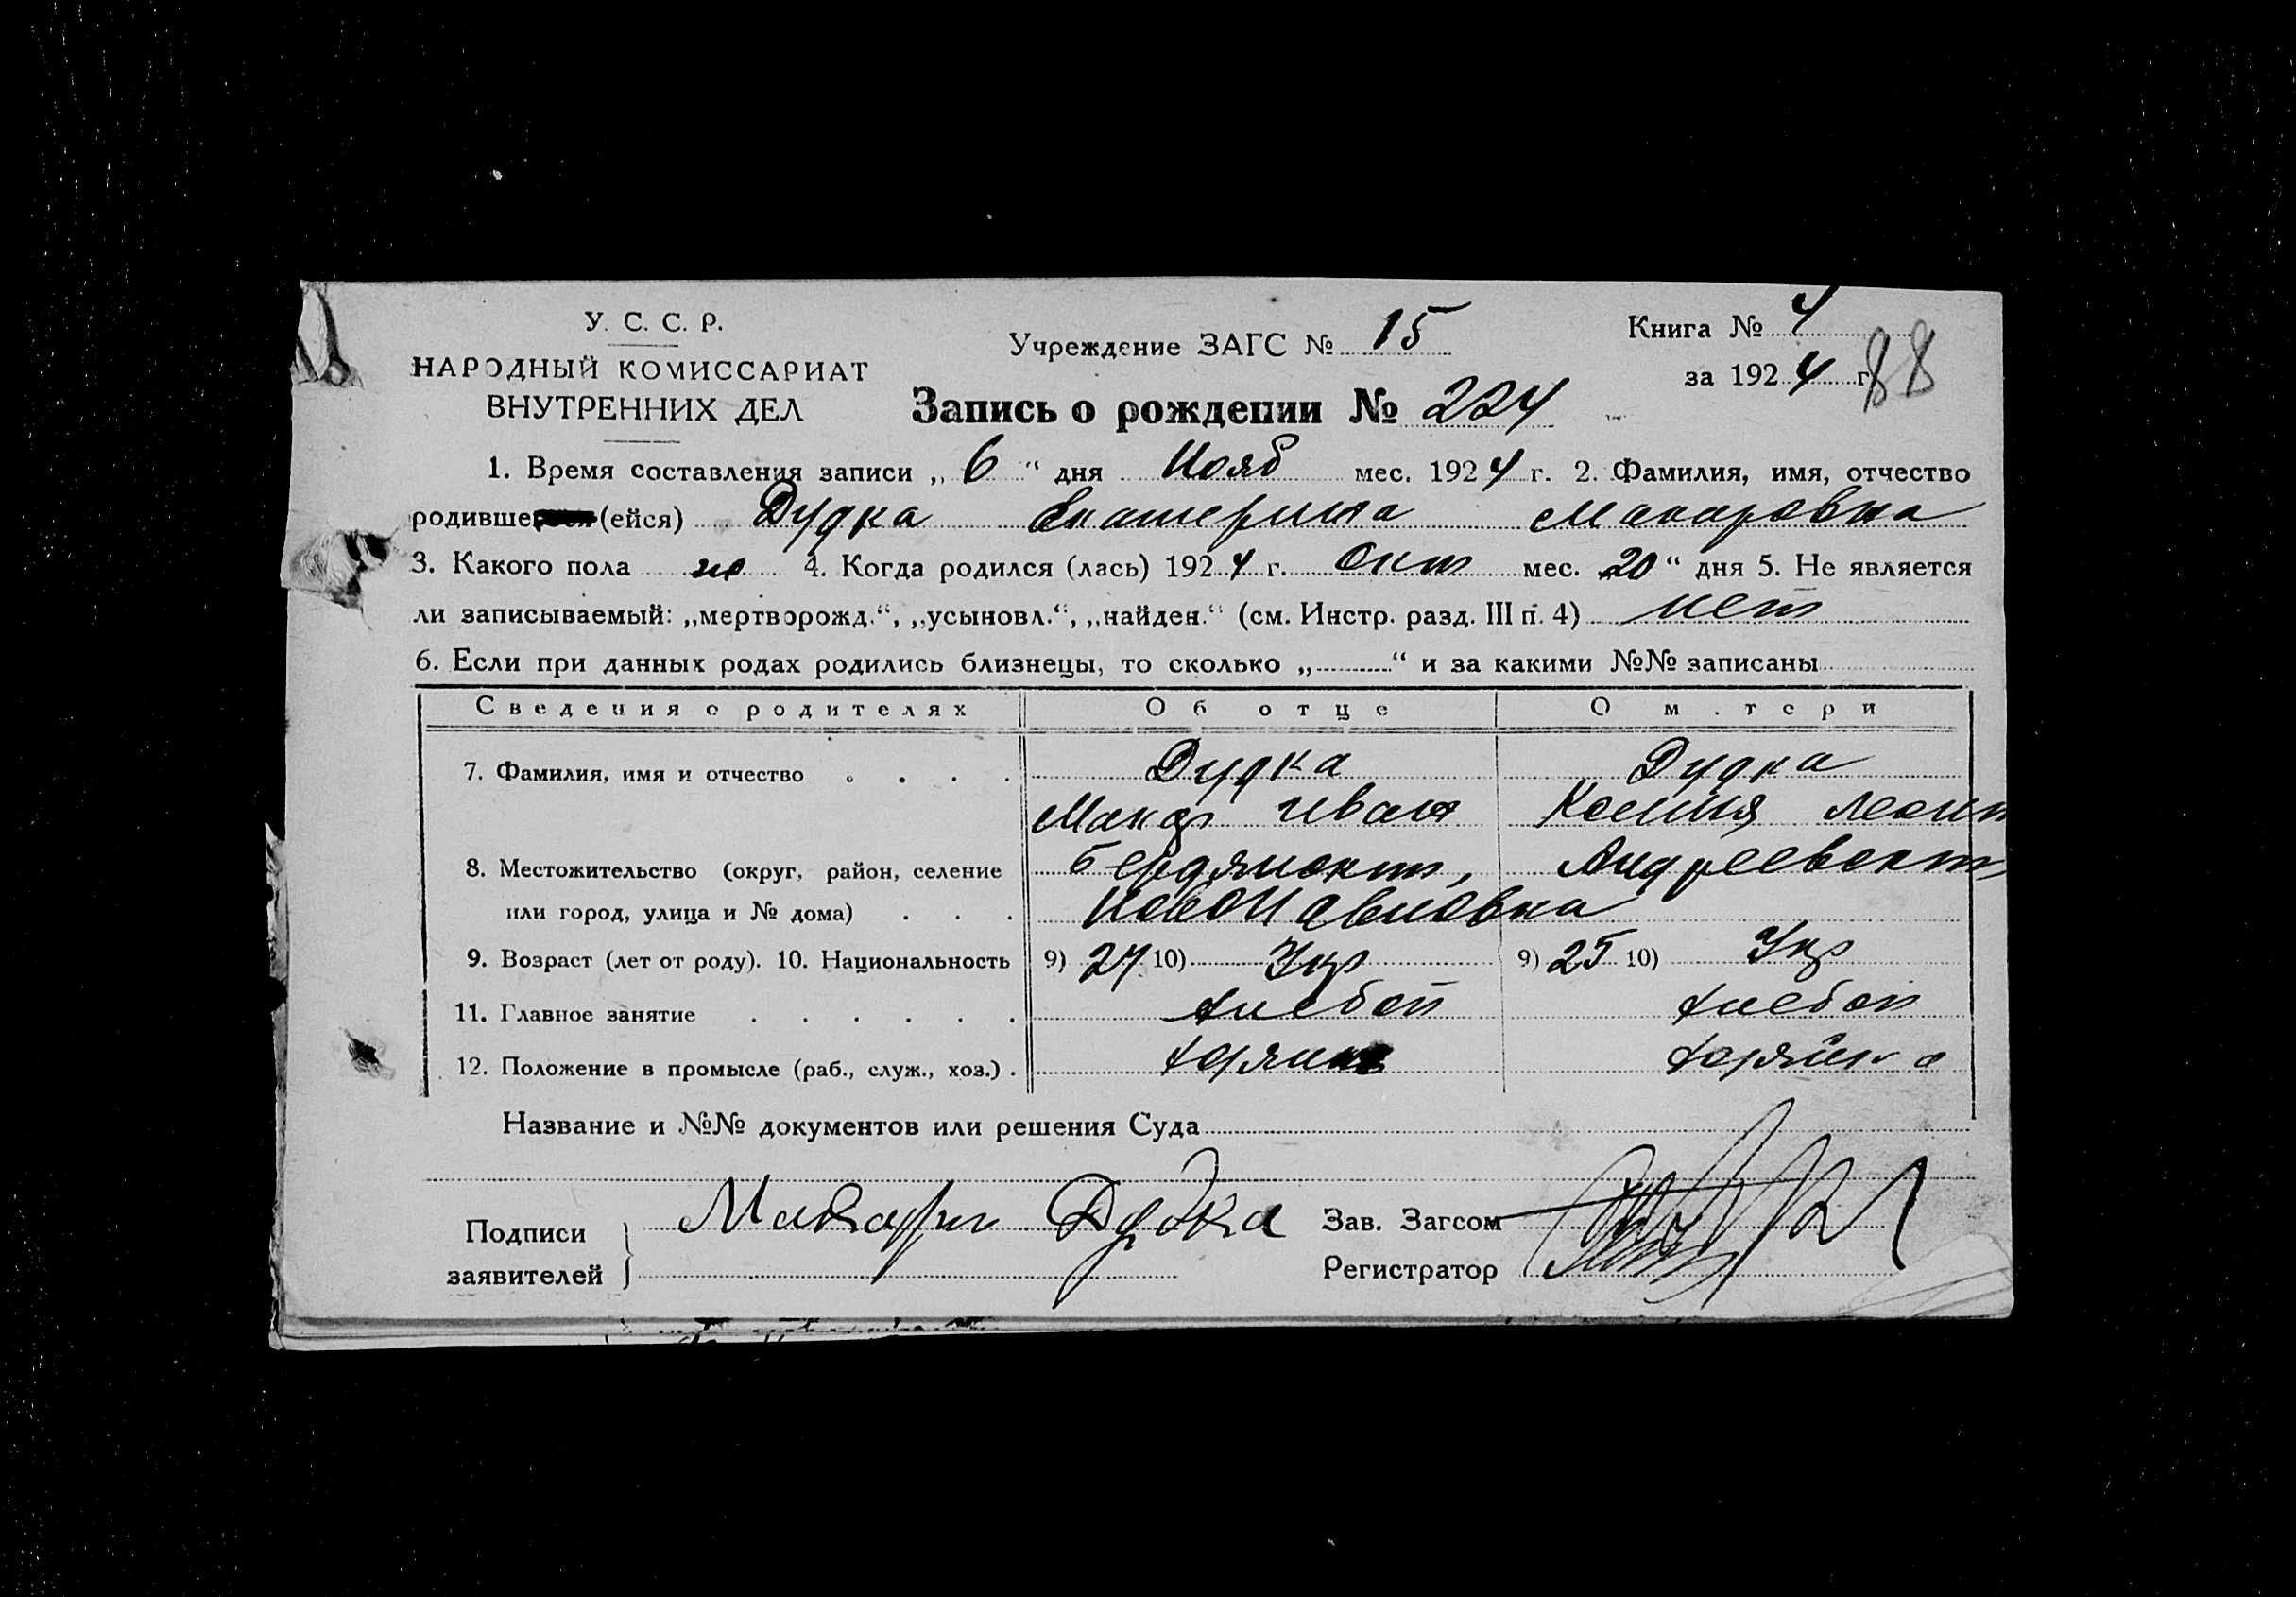 У. С. С. Р.
НАРОДНЫЙ КОМИССАРИАТ
ВНУТРЕННИХ ДЕЛ
Учреждение ЗАГС № 15
Книга № 4
за 1924 г.
88
Запись о рождении № 224
1. Время составления записи „ 6 “ дня Нояб мес. 1924 г. 2. Фамилия, имя, отчество
родивше (ейся) Дудка Екатерина Макаровна
3. Какого пола же 4. Когда родился (лась) 1924 г. Окт мес. 20 “ дня 5. Не является
ли записываемый: „мертворожд.“, „усыновл.“, „найден.“ (см. Инстр. разд. III п. 4) нет
6. Если при данных родах родились близнецы, то сколько „ “ и за какими №№ записаны
Сведения о родителях Об отце О м.тери
7. Фамилия, имя и отчество Дудка Дудка
Макар Иван Ксения Леонт
8. Местожительство (округ, район, селение Бердянокт, Андреевскт,
или город, улица и № дома) НовоПавловка
9. Возраст (лет от роду). 10. Национальность 9) 27 10) Укр 9) 25 10) Укр
11. Главное занятие хлебоп хлебоп
12. Положение в промысле (раб., служ., хоз.) хозяин хозяйка
Название и №№ документов или решения Суда
Подписи
заявителей
Макарий Дудка
Зав. Загсом
Регистратор